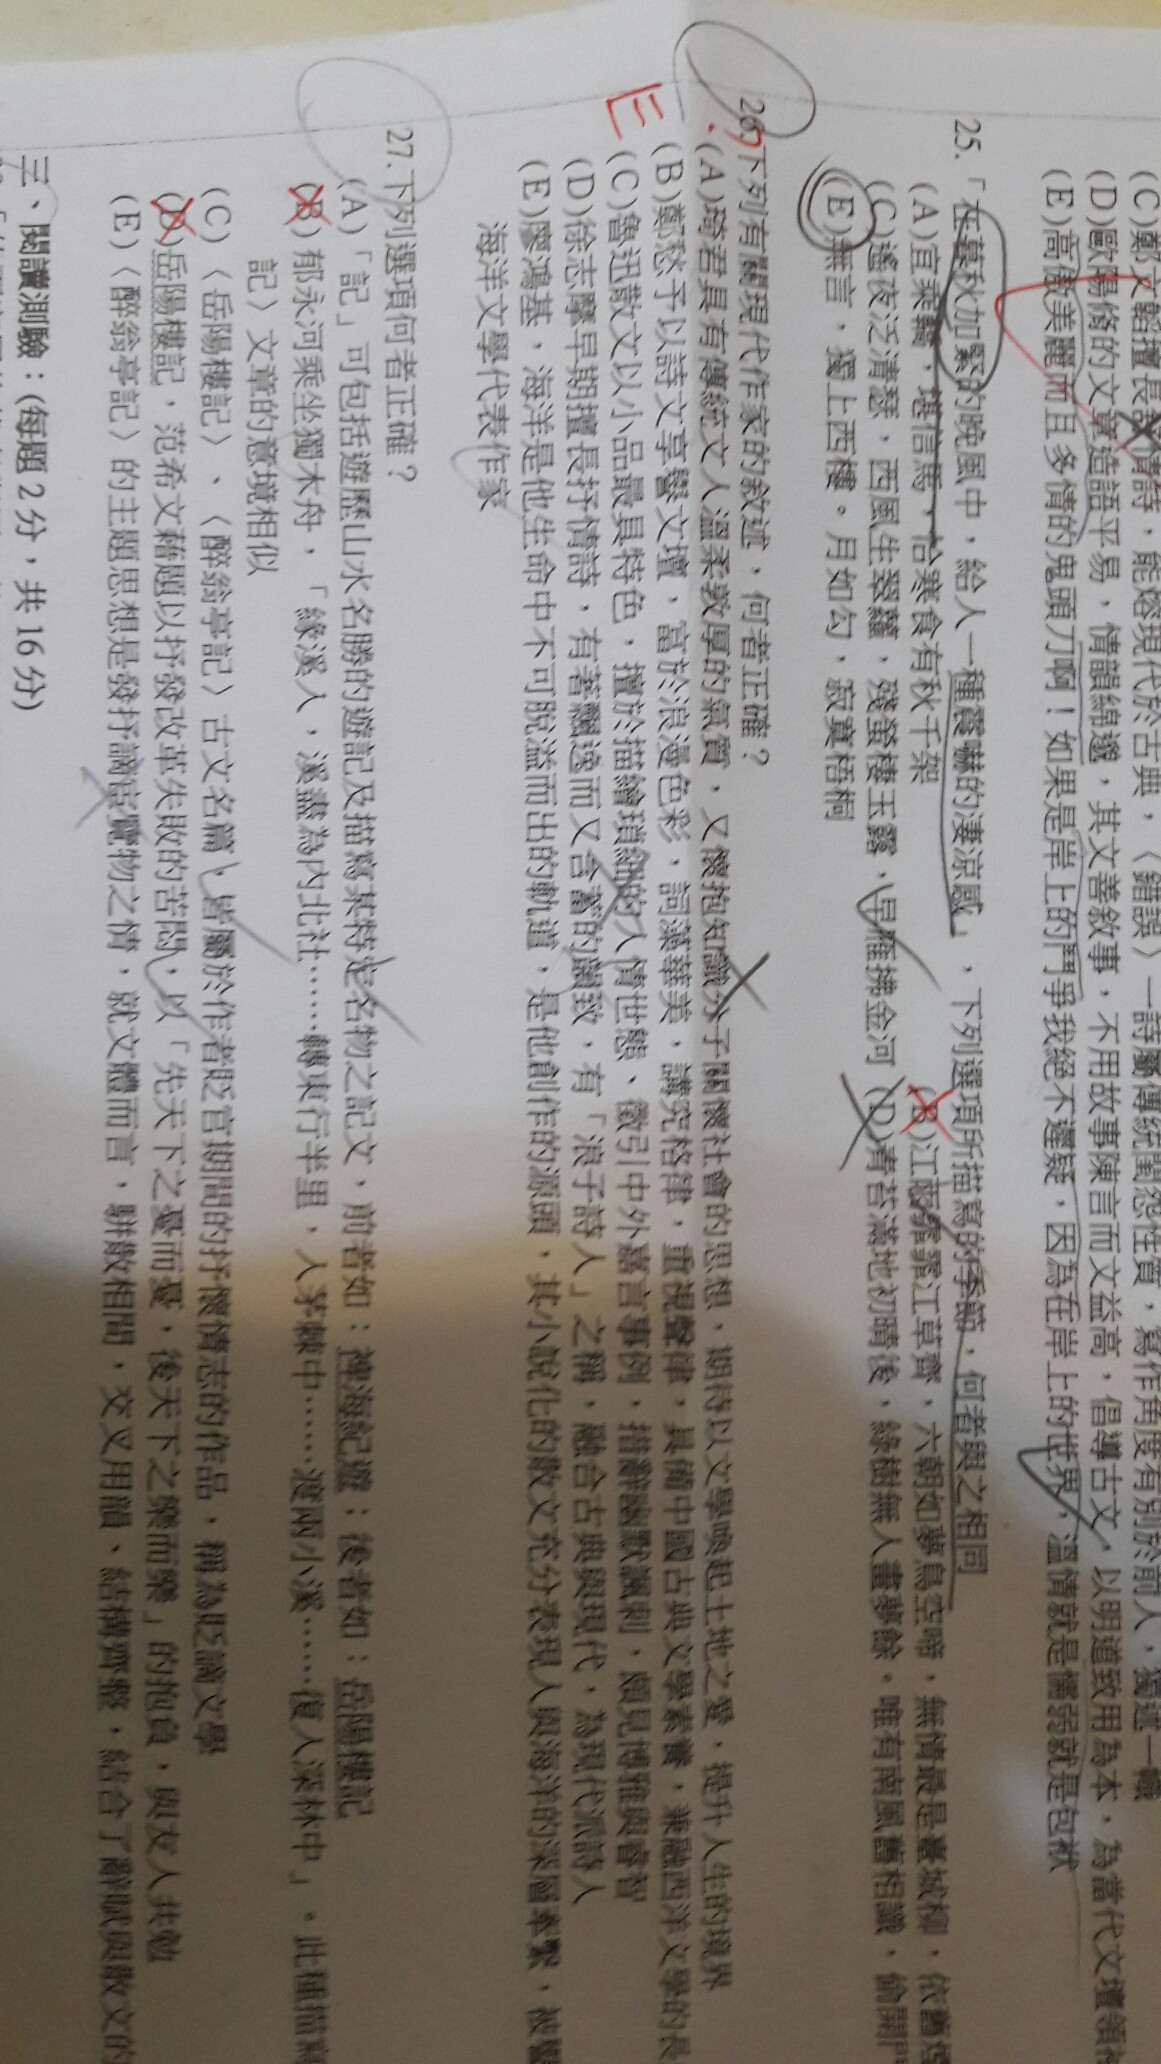 (C)鄭文韜擅長 情詩，能熔現代於古典，〈錯誤〉一詩屬傳統閨怨性質，寫作角度有別於前人，獨述一幟
(D)歐陽脩的文章造語平易，情韻綿邈，其文善敘事，不用故事陳言而文益高，倡導古文，以明道致用為本，為當代文壇領袖
(E)高傲美麗而且多情的鬼頭刀啊！如果是岸上的鬥爭我絕不遲疑，因為在岸上的世界，溫情就是懦弱就是包袱
25.「在暮秋加緊的晚風中，給人一種震嚇的淒涼感」，下列選項所描寫的季節，何者與之相同
(A)宜乘驥，堪信馬，恰寒食有秋千架 (B)江雨霏霏江草齊，六朝如夢鳥空啼，無情最是臺城柳，依舊煙
(C)遙夜泛清瑟，西風生翠蘿，殘螢棲玉露，早雁拂金河 (D)青苔滿地初晴後，綠樹無人晝夢餘。唯有南風舊相識，偷開門
(E)無言，獨上西樓。月如勾，寂寞梧桐
26.下列有關現代作家的敘述，何者正確？
(A)琦君具有傳統文人溫柔敦厚的氣質，又懷抱知識分子關懷社會的思想，期待以文學喚起土地之愛，提升人生的境界
(B)鄭愁予以詩文享譽文壇，富於浪漫色彩，詞藻華美，講究格律，重視聲律，具備中國古典文學素養，兼融西洋文學的長
E
(C)魯迅散文以小品最具特色，擅於描繪瑣細的人情世態、徵引中外嘉言事例，措辭幽默諷刺，頗見博雅與睿智
(D)徐志摩早期擅長抒情詩，有著飄逸而又含蓄的韻致，有「浪子詩人」之稱，融合古典與現代，為現代派詩人
(E)廖鴻基，海洋是他生命中不可脫溢而出的軌道，是他創作的源頭，其小說化的散文充分表現人與海洋的深層牽繫，被譽
海洋文學代表作家
27.下列選項何者正確？
(A)「記」可包括遊歷山水名勝的遊記及描寫某特定名物之記文，前者如：裨海紀遊；後者如：岳陽樓記
(B)郁永河乘坐獨木舟，「緣溪入，溪盡為內北社……轉東行半里，入茅棘中……渡兩小溪……復入深林中」。此種描寫
記〉文章的意境相似
(C)〈岳陽樓記〉、〈醉翁亭記〉古文名篇，皆屬於作者貶官期間的抒懷情志的作品，稱為貶謫文學
(D)岳陽樓記，范希文藉題以抒發改革失敗的苦悶，以「先天下之憂而憂，後天下之樂而樂」的抱負，與友人共勉
(E)〈醉翁亭記〉的主題思想是發抒謫宦覽物之情，就文體而言，駢散相間，交叉用韻、結構齊整，結合了辭賦與散文的
三、閱讀測驗：(每題2分，共16分)